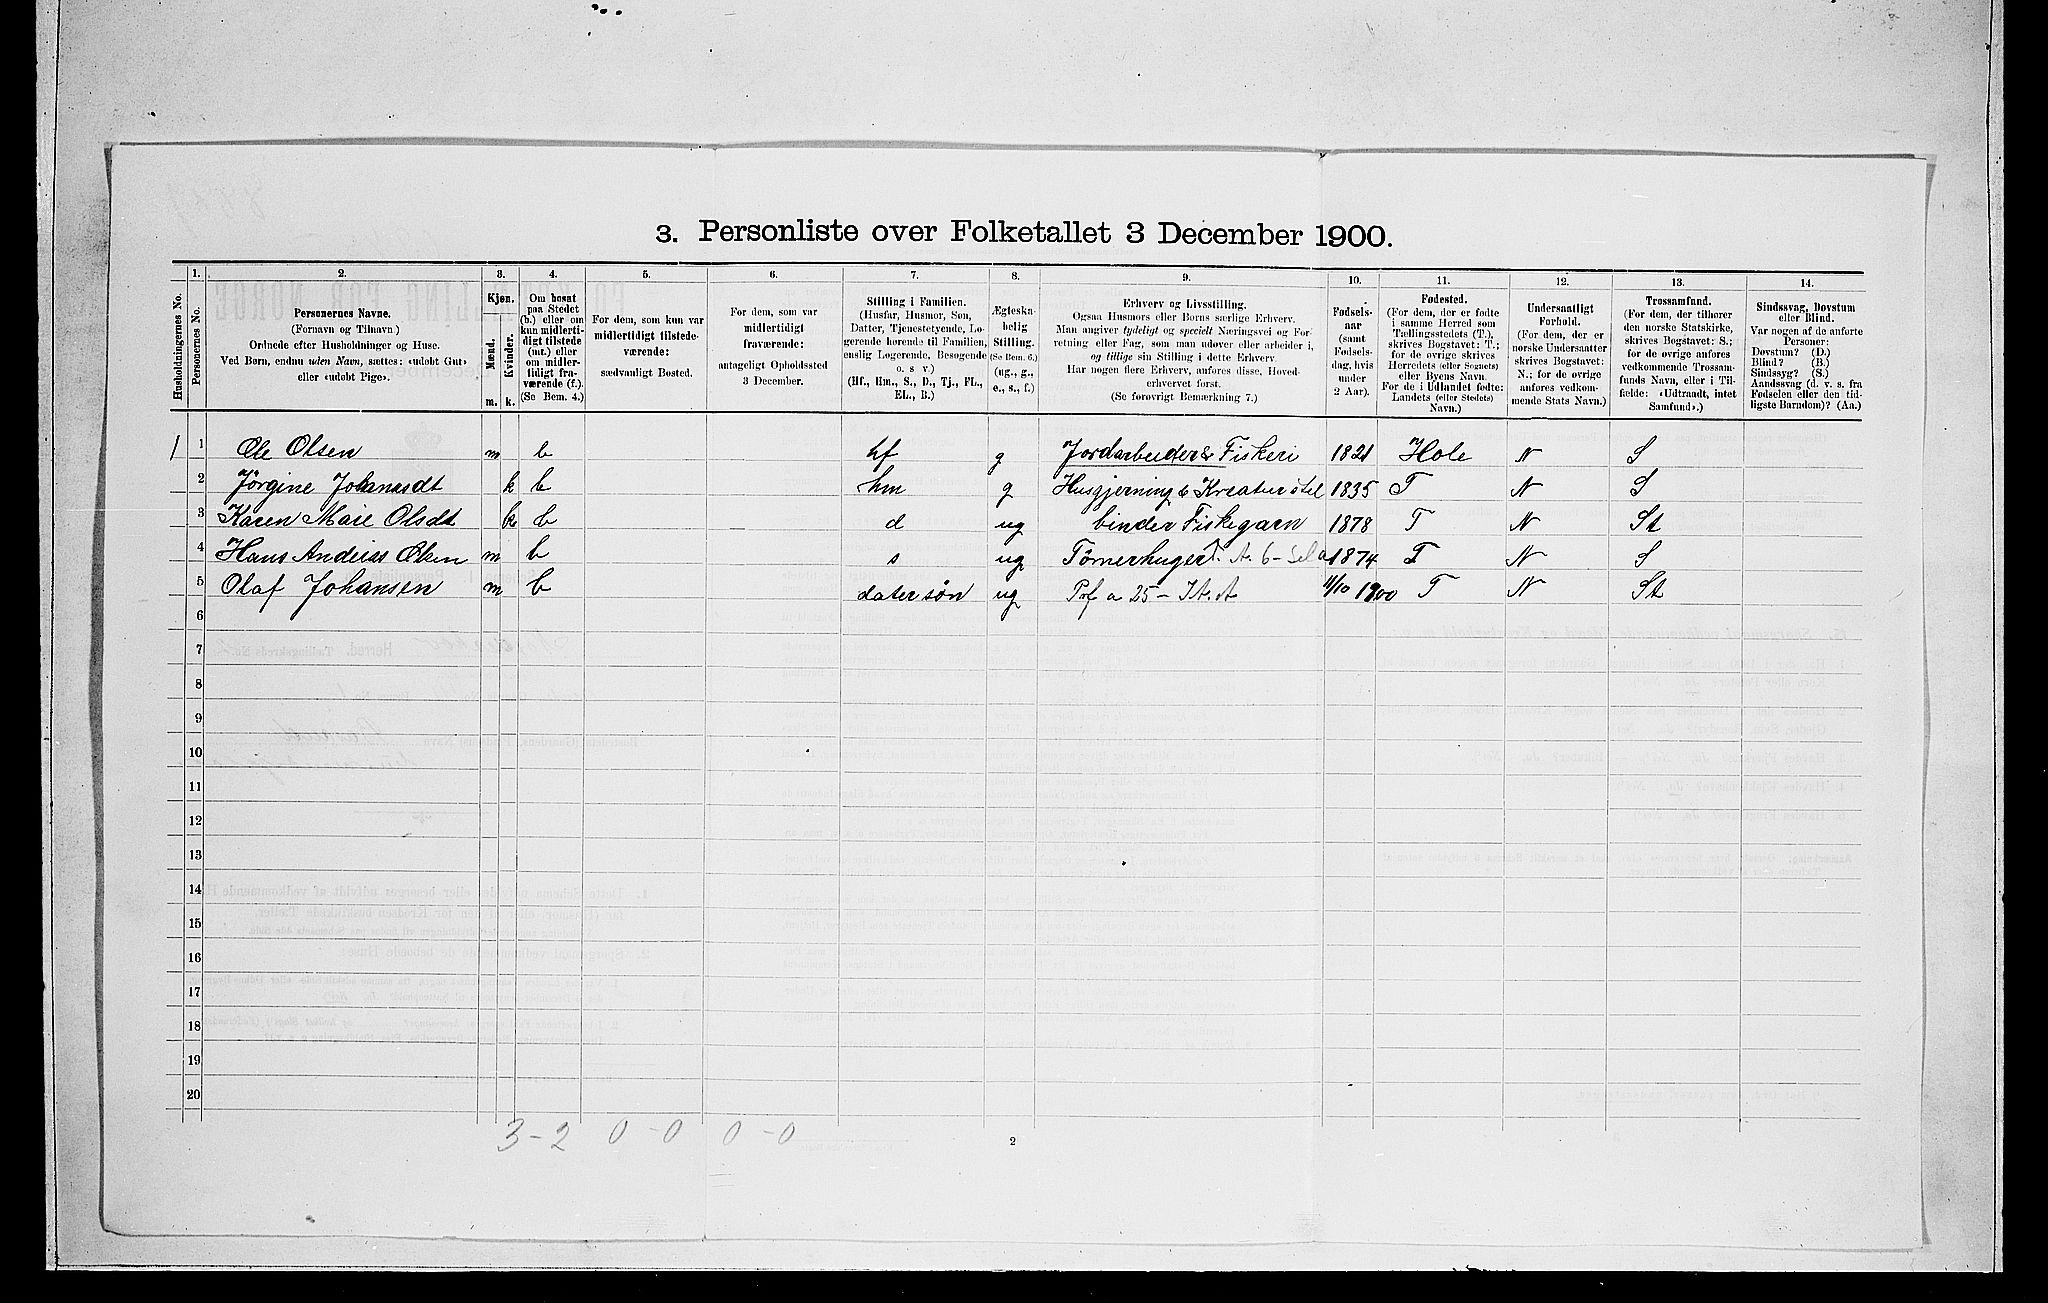 3. Personliste over Folketallet 3 December 1900.
1. 2. 3. 4. 5. 6. 7. 8. 9. 10. 11. 12. 13. 14.
Husholdningernes No.
Personernes No.
Personernes Navne.
(Fornavn og Tilnavn)
Ordnede efter Husholdninger og Huse.
Ved Børn, endnu uden Navn, sættes: «udøbt Gut»
eller «udøbt Pige».
Kjøn.
Mænd.
Kvinder.
m. k.
Om bosat
paa Stedet
(b.) eller om
kun midlerti-
digt tilstede
(mt.) eller
om midler-
tidigt fra-
værende (f.).
(Se Bem. 4.)
For dem, som kun var
midlertidigt tilstede-
værende:
sædvanligt Bosted.
For dem, som var
midlertidigt
fraværende:
antageligt Opholdssted
3 December.
Stilling i Familien.
(Husfar, Husmor, Søn,
Datter, Tjenestetyende, Lo-
gerende hørende til Familien,
enslig Logerende, Besøgende
o. s. v.)
(Hf., Hm., S., D., Tj., FL.,
EL., B.)
Ægteska-
belig
Stilling.
(Se Bem. 6.)
(ug., g.,
e., s., f.)
Erhverv og Livsstilling.
Ogsaa Husmors eller Børns særlige Erhverv.
Man angiver tydeligt og specielt Næringsvei og For-
retning eller Fag, som man udøver eller arbeider i,
og tidlige sin Stilling i dette Erhverv.
Har nogen flere Erhverv, anføres disse, Hoved-
erhvervet først.
(Se forøvrigt Bemærkning 7.)
Fødsels-
aar
(samt
Fødsels-
dag, hvis
under
2 Aar).
Fødested.
(For dem, der er fødte
i samme Herred som
Tællingsstedets (T.),
skrives Bogstavet: T.;
for de øvrige skrives
Herredets (eller Sognets)
eller Byens Navn.
For de i Udlandet fødte:
Landets (eller Stedets)
Navn.)
Undersaatligt
Forhold.
(For dem, der er
norske Undersaatter
skrives Bogstavet:
N.; for de øvrige
anføres vedkom-
mende Stats Navn.)
Trossamfund.
(For dem, der tilhører
den norske Statskirke,
skrives Bogstavet: S.;
for de øvrige anføres
vedkommende Trossam-
funds Navn, eller i Til-
fælde: «Udtraadt, intet
Samfund».)
Sindssvag, Døvstum
eller Blind.
Var nogen af de anførte
Personer:
Døvstum? (D.)
Blind? (B.)
Sindssyg? (S.)
Aandssvag (d. v. s. fra
Fødselen eller den tid-
ligste Barndom)? (Aa.)
1 1 Ole Olsen m b hf g Jordarbeider & Fiskeri 1821 Hole N S
2 Jörgine Johansdt k b hm g Husgjerning & Kreaturstel 1835 T N S
3 Karen Marie Olsdt k b d ug binder Fiskegarn 1878 T N St
4 Hans Andreas Olsen m b s ug Tömerhuger 1874 T N S
5 Olaf Johansen m b datersön ug 11/10 1900 T N St
6
7
8
9
10
11
12
13
14
15
16
17
18
19
20
3-2 0-0 0-0
2